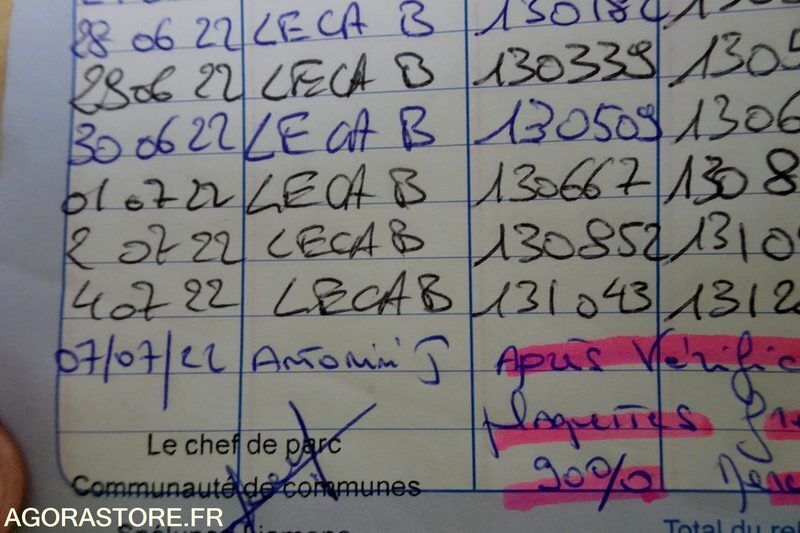 28 06 22 LECA B 130182
29 06 22 LECA B 130339 1305
30 06 22 LECA B 130509 1306
01 07 22 LECA B 130667 1308
2 07 22 LECA B 130852 1310
4 07 22 LECAB 131043 1312
07/07/22 Antonini J Après Vérific
Plaquettes
Le chef de parc 90%
Communauté de communes
AGORASTORE.FR Total du rel